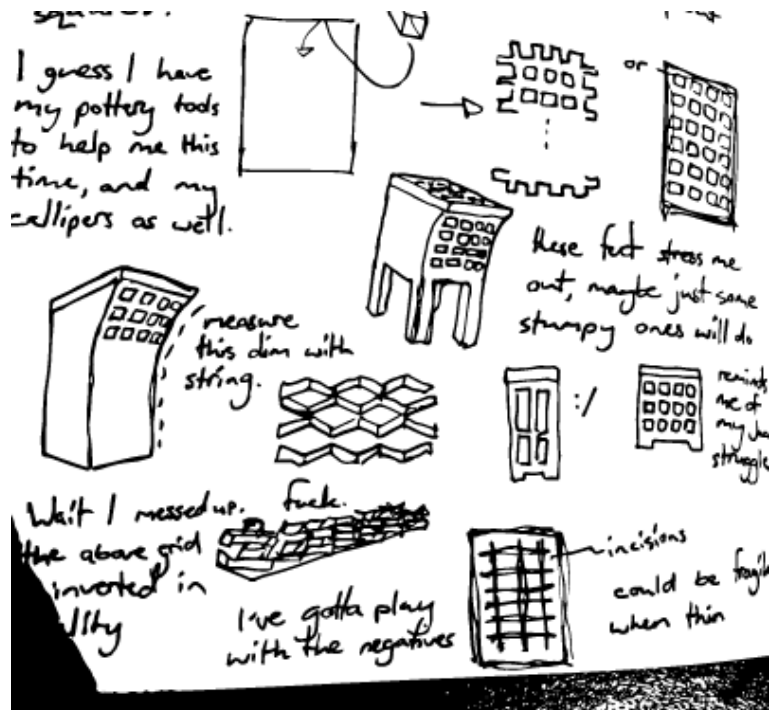 squares.
I guess I have
my pottery tools
to help me this
time, and my
callipers as well.
or
these feet stress me
out, maybe just some
stumpy ones will do
measure
this dim with
string.
:/
reminds
me of
my
struggle
Wait I messed up. fuck.
the above grid
inverted in
I've gotta play
with the negatives
incisions
could be fragile
when thin